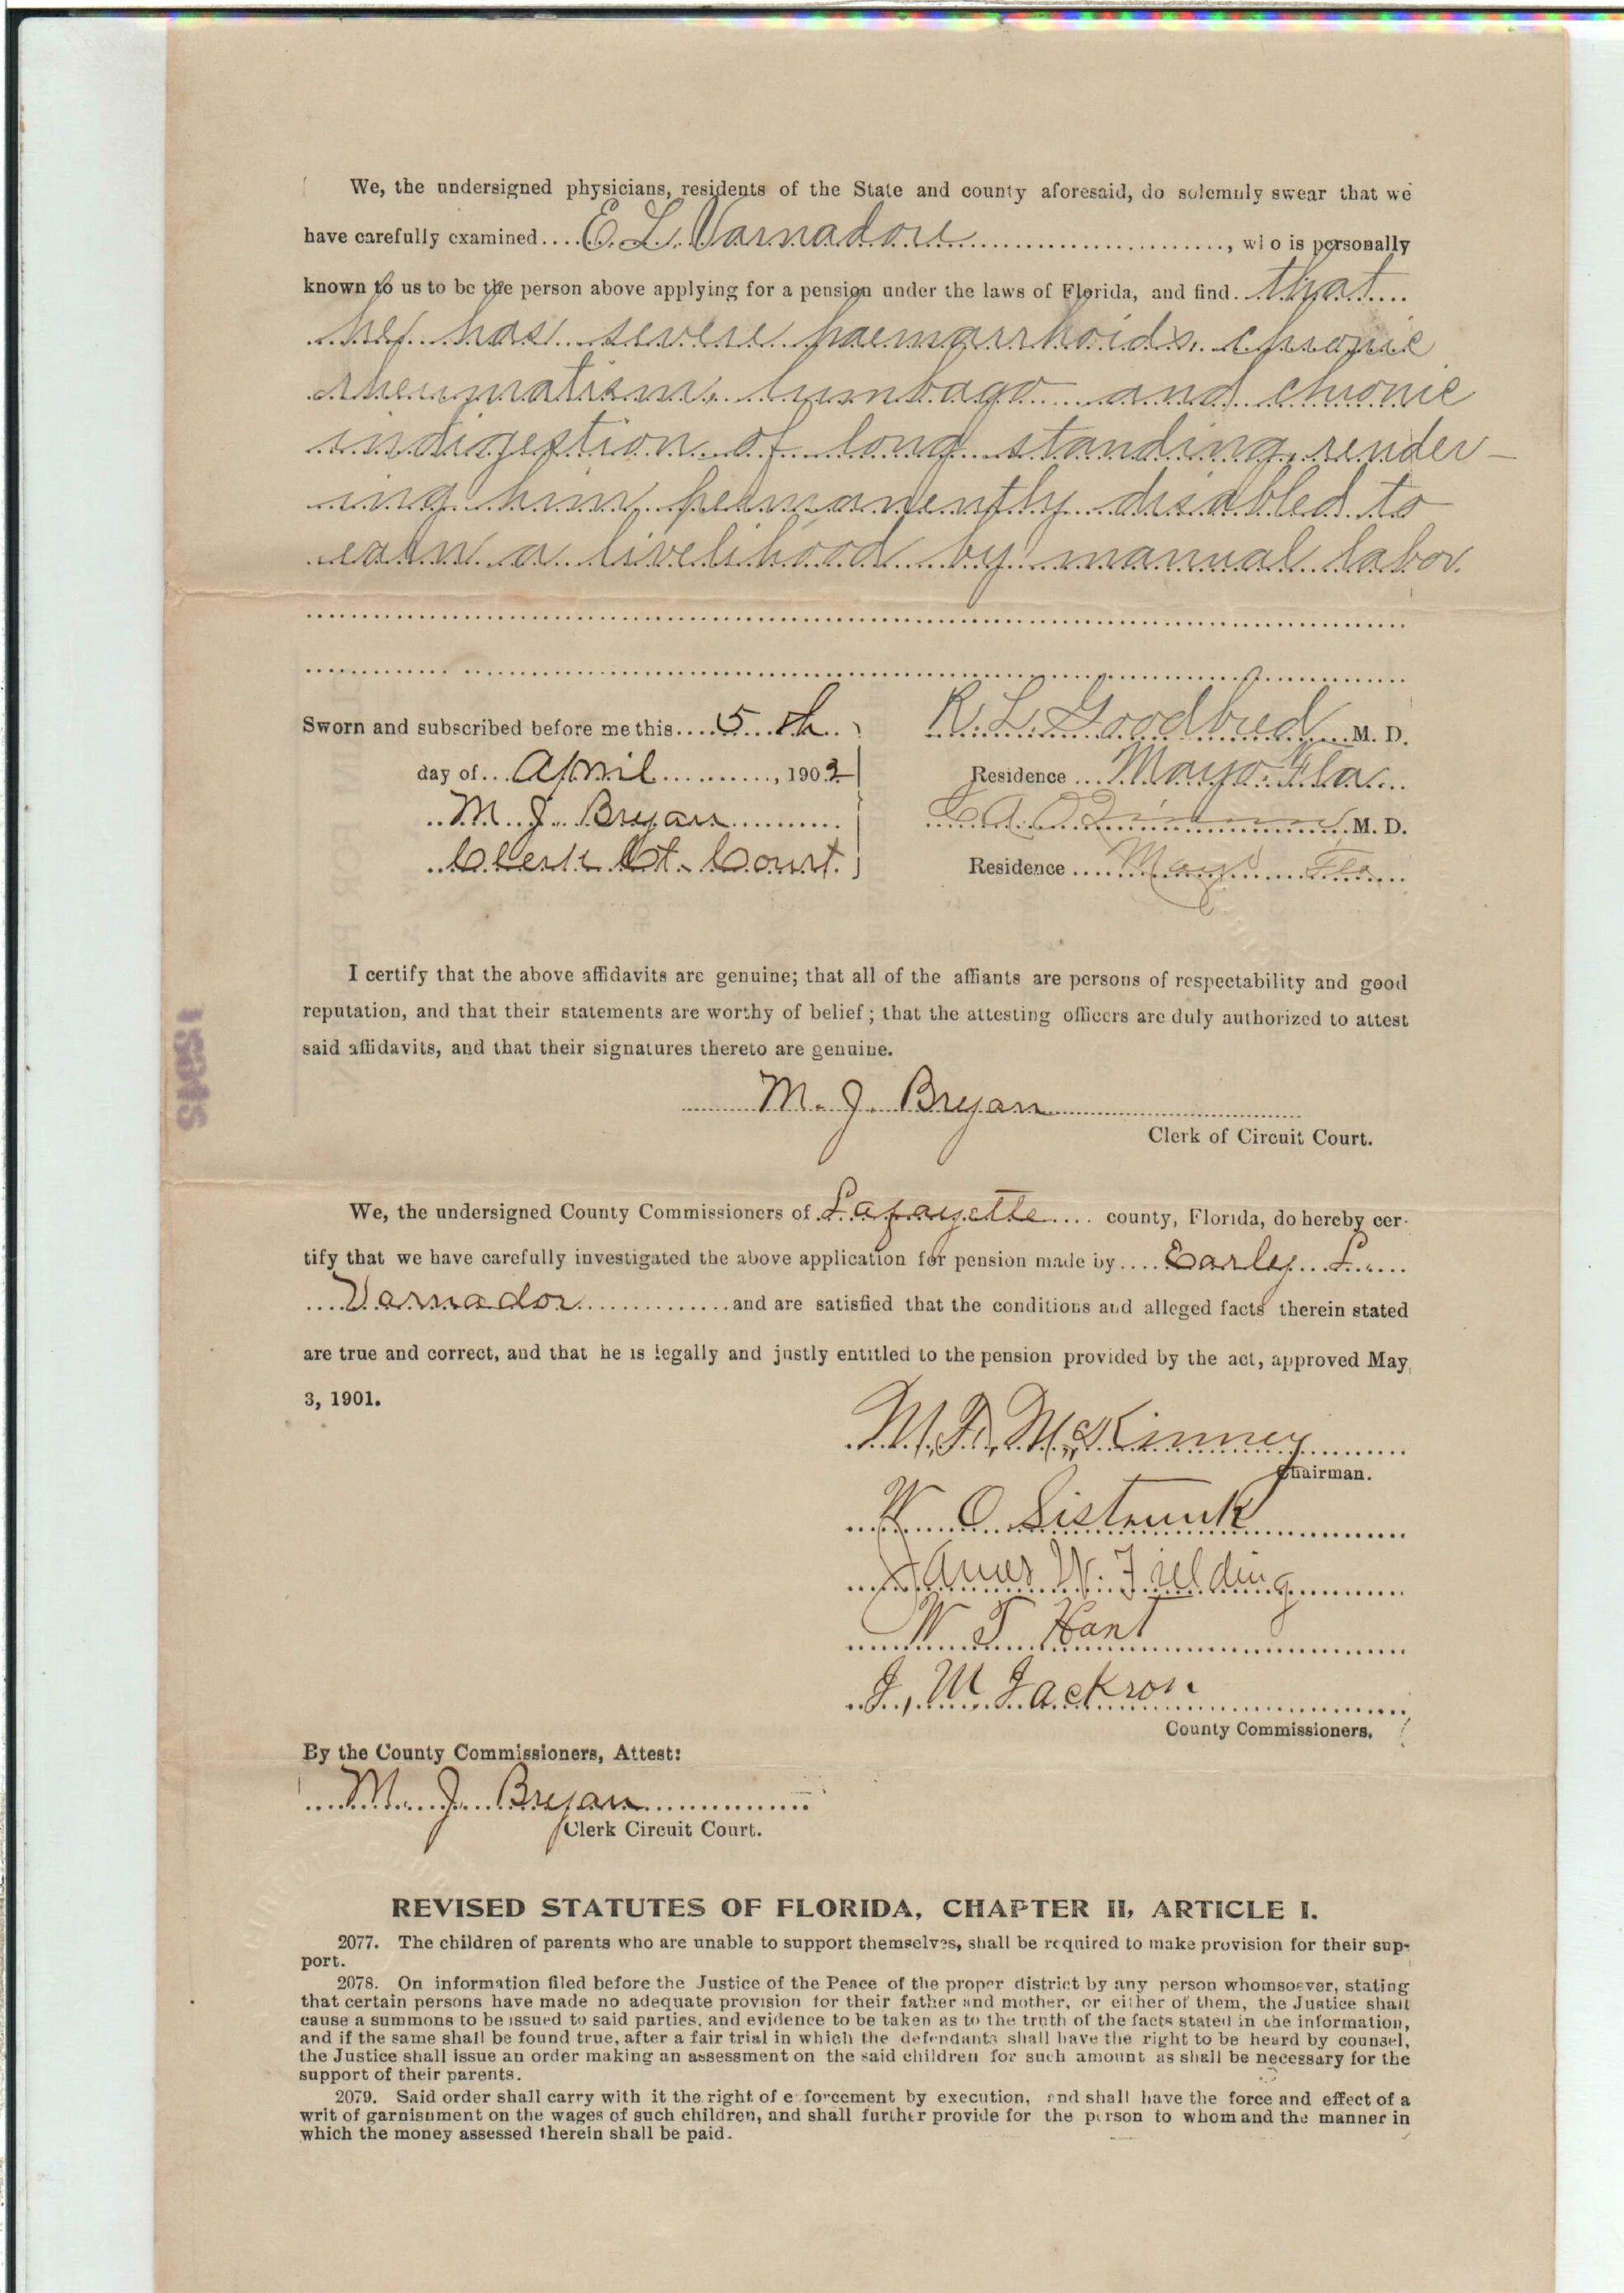 We, the undersigned physicians, residents of the State and county aforesaid, do solemnly swear that we
have carefully examined....E. L. Varnadore...................., who is personally
known to us to be the person above applying for a pension under the laws of Florida, and find. that....
he has severe haemarrhoids, chronic
rheumatism, lumbago and chronic
indigestion of long standing, render-
ing him permanently disabled to
earn a livelihood by manual labor.
Sworn and subscribed before me this....5th..
day of...April..........., 1902
M. J. Bryan
Clerk Ct. Court.
R. L. Goodbred M. D.
Residence ... Mayo Fla...
C A M. D.
Residence ..... Mayo Fla...
I certify that the above affidavits are genuine; that all of the affiants are persons of respectability and good
reputation, and that their statements are worthy of belief; that the attesting officers are duly authorized to attest
said affidavits, and that their signatures thereto are genuine.
M. J. Bryan
Clerk of Circuit Court.
We, the undersigned County Commissioners of Lafayette.... county, Florida, do hereby cer-
tify that we have carefully investigated the above application for pension made by.... Early L.....
....Varnador..............and are satisfied that the conditions and alleged facts therein stated
are true and correct, and that he is legally and justly entitled to the pension provided by the act, approved May
3, 1901.
M. F. McKinney
Chairman.
W O Sistrunk
James W. Fielding
W T Hant
J. M Jackson
County Commissioners.
By the County Commissioners, Attest:
M. J. Bryan
Clerk Circuit Court.
REVISED STATUTES OF FLORIDA, CHAPTER II, ARTICLE I.
2077. The children of parents who are unable to support themselves, shall be required to make provision for their sup-
port.
2078. On information filed before the Justice of the Peace of the proper district by any person whomsoever, stating
that certain persons have made no adequate provision for their father and mother, or either of them, the Justice shall
cause a summons to be issued to said parties, and evidence to be taken as to the truth of the facts stated in the information,
and if the same shall be found true, after a fair trial in which the defendants shall have the right to be heard by counsel,
the Justice shall issue an order making an assessment on the said children for such amount as shall be necessary for the
support of their parents.
2079. Said order shall carry with it the right of enforcement by execution, and shall have the force and effect of a
writ of garnishment on the wages of such children, and shall further provide for the person to whom and the manner in
which the money assessed therein shall be paid.